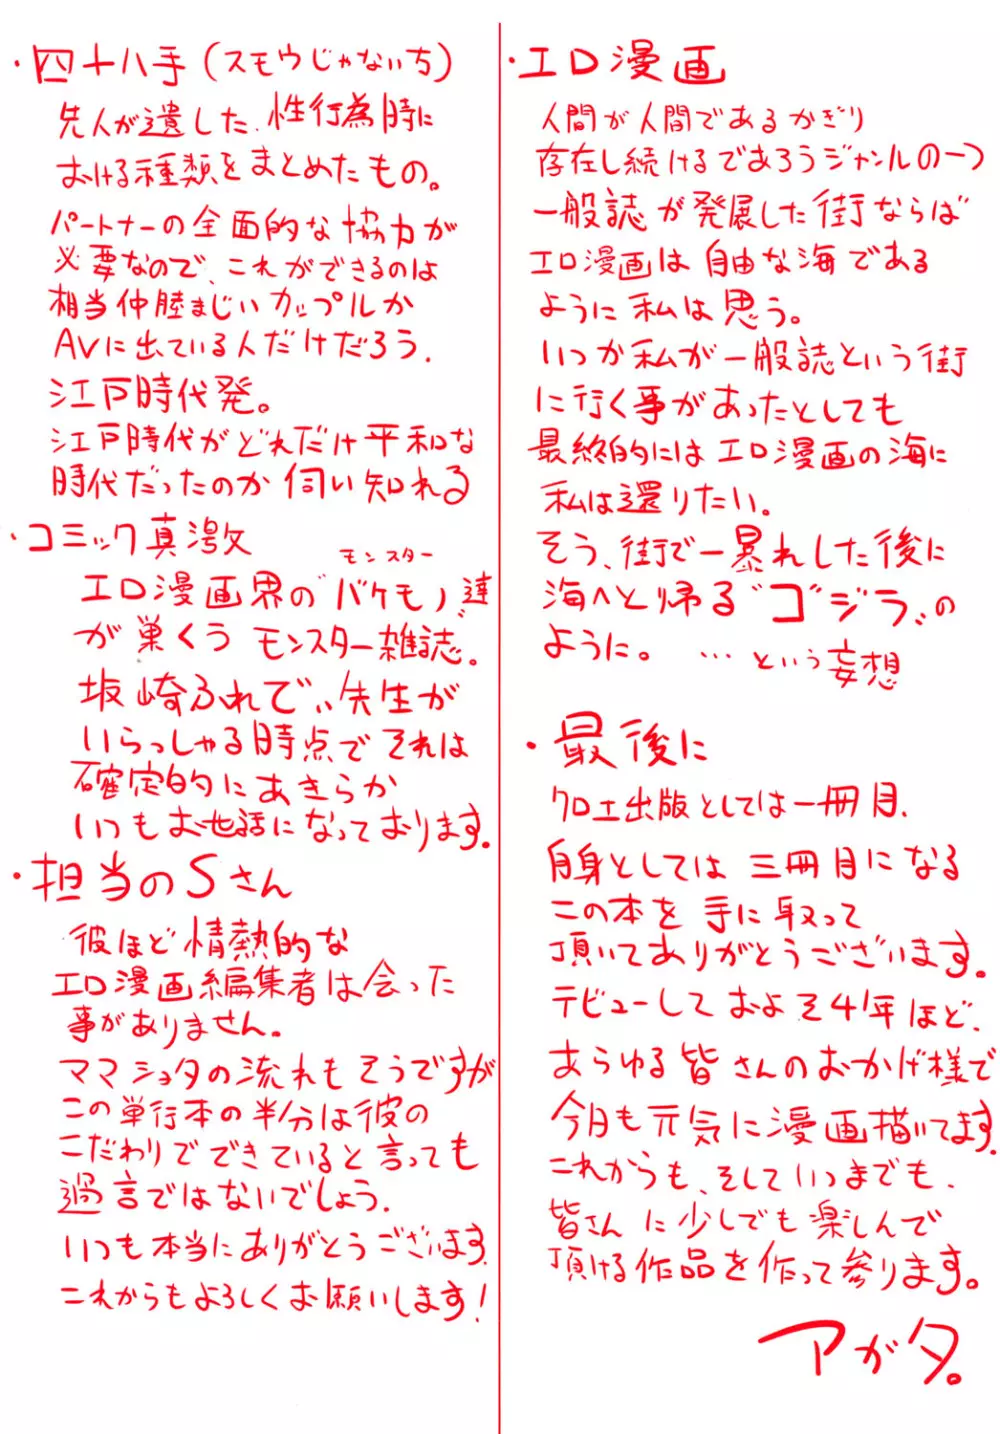 ・四十八手(スモウじゃないち)
先人が遺した、性行為時に
おける種類をまとめたもの。
パートナーの全面的な協力が
必要なので、これができるのは
相当仲睦まじいカップルか
AVに出ている人だけだろう.
江戸時代発。
江戸時代がどれだけ平和な
時代だったのか伺い知れる
・コミック真激
モンスター
エロ漫画界の"バケモノ達"
が巣くうモンスター雑誌。
坂崎ふれでぃ先生が
いらっしゃる時点でそれは
確定的にあきらか
いつもお世話になっております。
・担当のSさん
彼ほど情熱的な
エロ漫画編集者は会った
事がありません。
ママショタの流れもそうですが
この単行本の半分は彼の
こだわりでできていると言っても
過言ではないでしょう.
いつも本当にありがとうございます.
これからもよろしくお願いします!
・エロ漫画
人間が人間であるかぎり
存在し続けるであろうジャンルの一つ
一般誌が発展した街ならば
エロ漫画は自由な海である
ように私は思う。
いつか私が一般誌という街
に行く事があったとしても
最終的にはエロ漫画の海に
私は還りたい。
そう、街で一暴れした後に
海へと帰る"ゴジラ"の
ように。 …という妄想
・最後に
クロエ出版としては一冊目.
自身としては三冊目になる
この本を手に取って
頂いてありがとうございます。
デビューしておよそ4年ほど、
あらゆる皆さんのおかげ様で
今月も元気に漫画描いてます.
これからも、そしていつまでも、
皆さんに少しでも楽しんで
頂ける作品を作って参ります。
アガタ。